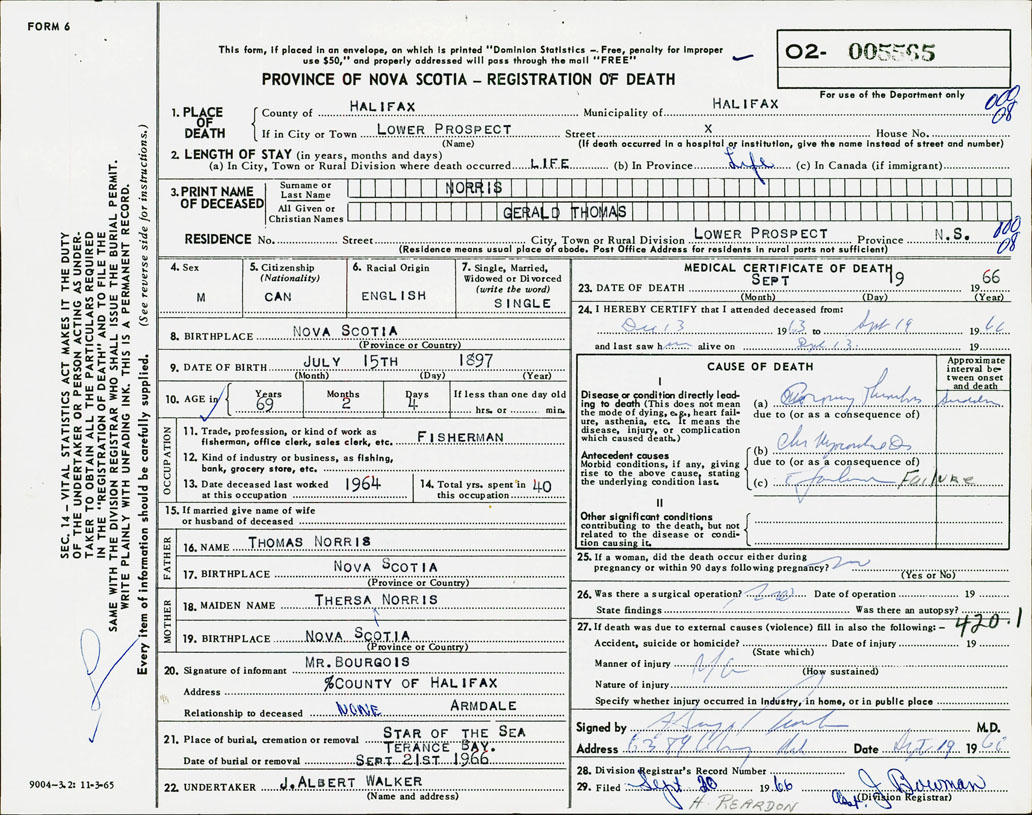 FORM 6
This form, if placed in an envelope, on which is printed "Dominion Statistics — Free, penalty for improper
use $50," and properly addressed will pass through the mail "FREE"
PROVINCE OF NOVA SCOTIA – REGISTRATION OF DEATH
02- 005565
For use of the Department only
000
08
1. PLACE OF DEATH
County of HALIFAX Municipality of HALIFAX
If in City or Town LOWER PROSPECT Street X House No.
(Name) (If death occurred in a hospital or institution, give the name instead of street and number)
2. LENGTH OF STAY (in years, months and days)
(a) In City, Town or Rural Division where death occurred LIFE (b) In Province Life (c) In Canada (if immigrant)
3. PRINT NAME OF DECEASED
Surname or Last Name NORRIS
All Given or Christian Names GERALD THOMAS
RESIDENCE No. Street City, Town or Rural Division LOWER PROSPECT Province N.S.
(Residence means usual place of abode. Post Office Address for residents in rural parts not sufficient)
000
08
4. Sex M
5. Citizenship (Nationality) CAN
6. Racial Origin ENGLISH
7. Single, Married, Widowed or Divorced (write the word) SINGLE
8. BIRTHPLACE NOVA SCOTIA
(Province or Country)
9. DATE OF BIRTH JULY 15TH 1897
(Month) (Day) (Year)
10. AGE in Years 69 Months 2 Days 4 If less than one day old hrs. or min.
OCCUPATION
11. Trade, profession, or kind of work as
fisherman, office clerk, sales clerk, etc. FISHERMAN
12. Kind of industry or business, as fishing,
bank, grocery store, etc.
13. Date deceased last worked at this occupation 1964
14. Total yrs. spent in this occupation 40
15. If married give name of wife
or husband of deceased
FATHER
16. NAME THOMAS NORRIS
17. BIRTHPLACE NOVA SCOTIA
(Province or Country)
MOTHER
18. MAIDEN NAME THERSA NORRIS
19. BIRTHPLACE NOVA SCOTIA
(Province or Country)
20. Signature of informant MR. BOURGOIS
Address %COUNTY OF HALIFAX
Relationship to deceased NONE ARMDALE
21. Place of burial, cremation or removal STAR OF THE SEA
TERANCE BAY.
Date of burial or removal SEPT 21ST 1966
22. UNDERTAKER J. ALBERT WALKER
(Name and address)
MEDICAL CERTIFICATE OF DEATH
23. DATE OF DEATH SEPT 19 1966
(Month) (Day) (Year)
24. I HEREBY CERTIFY that I attended deceased from:
Dec 13 1963 to Sept 19 1966
and last saw h alive on Sept 13 19
CAUSE OF DEATH
Approximate interval between onset and death
I
Disease or condition directly leading to death (This does not mean the mode of dying, e.g., heart failure, asthenia, etc. It means the disease, injury, or complication which caused death.)
(a) Coronary Thrombosis Sudden
due to (or as a consequence of)
Antecedent causes
Morbid conditions, if any, giving rise to the above cause, stating the underlying condition last.
(b) Chr Myocarditis
due to (or as a consequence of)
(c) failure FAILURE
II
Other significant conditions
contributing to the death, but not related to the disease or condition causing it.
25. If a woman, did the death occur either during
pregnancy or within 90 days following pregnancy?
(Yes or No)
26. Was there a surgical operation? no Date of operation 19
State findings Was there an autopsy?
420.1
27. If death was due to external causes (violence) fill in also the following:–
Accident, suicide or homicide? Date of injury 19
(State which)
Manner of injury N/A
(How sustained)
Nature of injury
Specify whether injury occurred in Industry, in home, or in public place
Signed by M.D.
Address Date Sept 19 1966
28. Division Registrar's Record Number
29. Filed Sept 20 1966 J Bowman
(Division Registrar)
H. REARDON
SEC. 14 – VITAL STATISTICS ACT MAKES IT THE DUTY
OF THE UNDERTAKER OR PERSON ACTING AS UNDER-
TAKER TO OBTAIN ALL THE PARTICULARS REQUIRED
IN THE "REGISTRATION OF DEATH" AND TO FILE THE
SAME WITH THE DIVISION REGISTRAR WHO SHALL ISSUE THE BURIAL PERMIT.
WRITE PLAINLY WITH UNFADING INK. THIS IS A PERMANENT RECORD.
Every item of information should be carefully supplied. (See reverse side for instructions.)
9004-3.2: 11-3-65